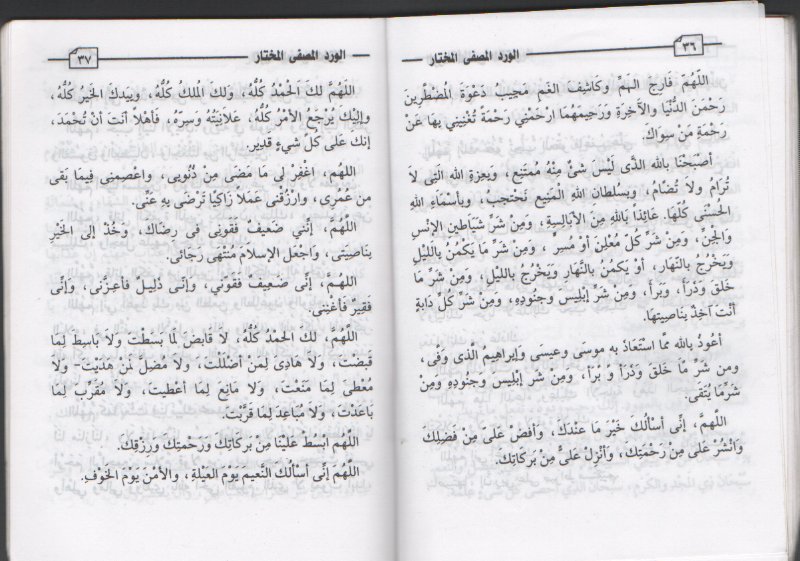 ٣٦
الورد المصفى المختار
اللَّهُمَّ فَارِجَ الهَمِّ وَكَاشِفَ الغَمِ مُجِيبَ دَعْوَةَ المُضْطَرِّينَ
رَحْمَنَ الدُّنْيَا وَالآخِرَةِ وَرَحِيمَهُمَا ارْحَمْنِى رَحْمَةً تُغْنِينِي بِهَا عَنْ
رَحْمَةِ مَنْ سِوَاكَ.
أَصْبَحْنَا بالله الذَّى لَيْسَ شَئْ مِنْهُ مُمتَنِع، وَبِعِزةِ الله التِى لاَ
تُرَامُ ولاَ تُضَامُ، وَبسُلطَانِ الله المَنِيعِ نَحْتَجِبُ، وبأسْمَاءِ الله
الحُسْنَى كُلِّهَا. عَائِذًا بَاللهِ مِنَ الأَبَالِسِةِ، وَمِنْ شَرِّ شَيَاطِينِ الإِنْسِ
وَالْجِنِّ، وَمِنَ شَرِّ كُلِّ مُعْلِنٍ أوْ مُسِرٍّ، وَمِنْ شَرِّ مَا يَكْمُنُ بِاللَّيْلِ
وَيَخْرُجُ بالنَّهَارِ، أَوْ يَكْمُنُ بِالنَّهَارِ وَيَخْرُجُ بِاللَّيْلِ، وَمِنْ شَرِّ مَا
خَلَقَ وَذَرَأَ، وَبَرأَ، وَمِنْ شَرِّ إبْلِيس وَجنُودِهِ، وَمِنْ شَرِّ كُلِّ دَابةٍ
أنْتَ آخِذٌ بنَاصِيتِهَا.
أعُوذُ بالله ممَّا اسْتَعَاذَ به مُوسَى وَعيسَى وَإبراهِيمُ الَّذى وَفَّى،
ومِن شَرِّ مَا خَلَقَ وَذَرَأَ وَ بُرأَ، وَمِنْ شَرِ إبْلِيسَ وَجُنُودِهِ وَمِنْ
شَرِّمَا يُتَقَى.
اللَّهمَّ، إنِّى أسْألُكَ خَيْرَ مَا عنْدَكَ، وَأفضْ عَلَىَّ مِنْ فَضْلِكَ
وَانْشُرْ عَلَى مِنْ رَحْمَتِكَ، وَأنْزِلْ عَلَىَّ مِنْ بَركَاتِكَ.
الورد المصفى المختار
٣٧
اللَّهُمَّ لَكَ الْحَمْدُ كُلُّهُ، وَلَكَ المُلكُ كُلُّهُ، وَبِيَدكَ الخَيْرُ كُلُّهُ،
وإليْكَ يَرْجْعُ الأمْرُ كُلُّهُ، عَلاَنِيَتُهُ وَسِرهُ، فَأهْلاً أنتَ أنْ تُحْمَدَ،
إنكَ عَلَى كلِّ شَىءٍ قَدِير.
اللهُم، اغْفِرْ لِى مَا مَضَى مِنْ ذُنُوبِى، وَاعْصِمْنِى فِيمَا بَقى
مِن عُمُرِى، وارْزُقْنى عَمَلاً زَاكِيًا تَرْضَى بِهِ عَنِّى.
اللَّهُمَّ، إنَّنى ضَعيفٌ فَقَوِّنى فى رِضَاكَ، وَخُذْ إلى الخَيْرِ
بِنَاصيَتى، وَاجْعَلِ الإسْلامَ مُنْتَهَى رَجَائى.
اللهُمَّ، إنِّى ضَعِيفٌ فَقَوِّنِي، وَإنِّى ذَلِيلٌ فأعزَّنى، وَإنِّى
فَقِيرٌ فَأَغْنِنى.
اللَّهُمَّ، لَكَ الحَمْدُ كُلُّهُ، لاَ قَابِضَ لَما بَسَطْتَ وَلاَ بَاسِطَ لِمَا
قَبَضْتَ، وَلاَ هَادِىَ لِمَنْ أَضْلَلتَ، وَلاَ مُضِلَّ لمَنْ هَدَيْتَ- وَلاَ
مُعْطَى لِمَا مَنَعْتَ، وَلاَ مَانِعَ لِمَا أعْطَيتَ، وَلاَ مُقَرِّبَ لِمَا
بَاعَدْتَ، وَلاَ مُبَاعِدَ لِمَا قَرَّبْتَ.
اللَّهُم ابْسُطْ عَلَيْنَا مِنْ بَرَكَاتِكَ وَرَحْمِتكَ وَرزْقِكَ.
اللَّهُم إنِّى أسْألُكَ النَّعيمَ يَوْمَ العَيْلةِ، والأمْنَ يَوْمَ الخَوْفِ.